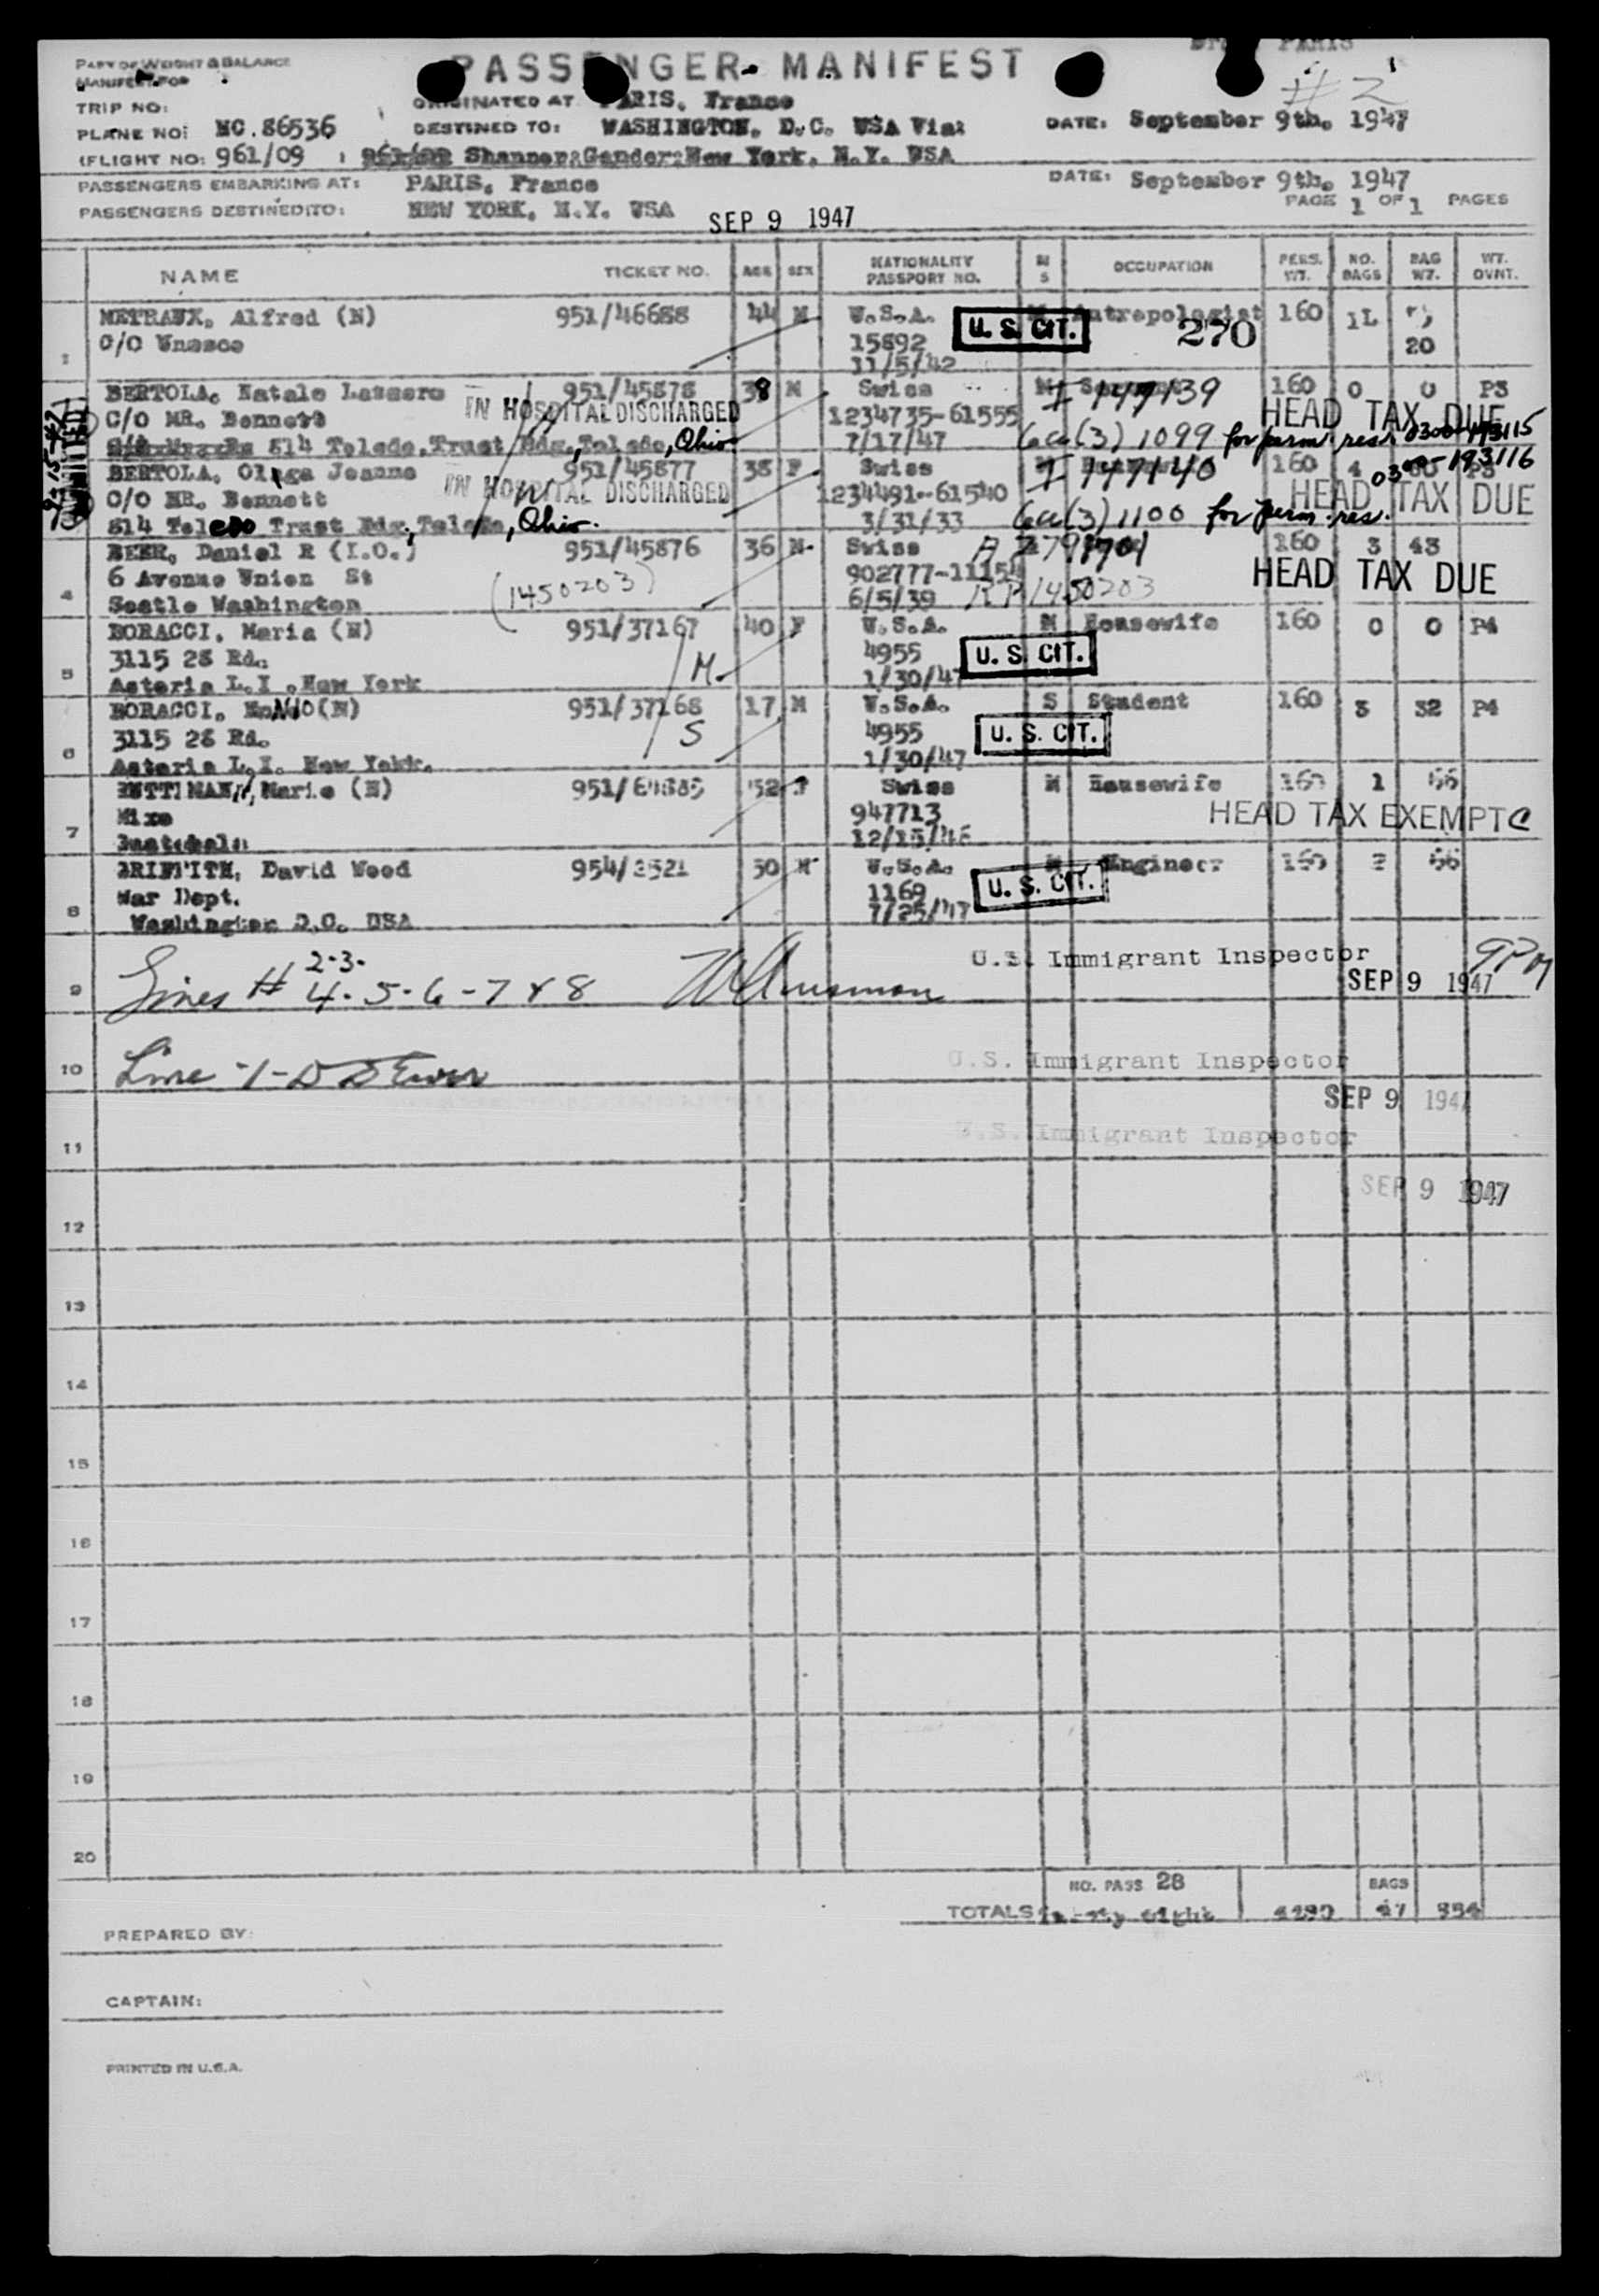 PART OF WEIGHT & BALANCE
MANIFEST FOR
PASSENGER MANIFEST
PARIS
#2
TRIP NO:
ORIGINATED AT PARIS, France
PLANE NO: NC.86536
DESTINED TO: WASHINGTON, D.C. USA Via:
DATE: September 9th, 1947
(FLIGHT NO: 961/09 Shannon:Gander:New York, N.Y. USA
PASSENGERS EMBARKING AT: PARIS, France
DATE: September 9th, 1947
PASSENGERS DESTINED TO: NEW YORK, N.Y. USA
SEP 9 1947
PAGE 1 OF 1 PAGES
NAME TICKET NO. AGE SEX NATIONALITY PASSPORT NO. M S OCCUPATION PERS. WT. NO. BAGS BAG WT. WT. OVNT.
METRAUX, Alfred (N) 951/46688 44 M U.S.A. M Antropologist 160 1L
C/O Unesco 15892 U. S. CIT. 270 20
1 11/5/42
BERTOLA, Natale Lazzero 951/45878 38 M Swiss M I 147139 160 0 0 P3
C/O MR. Bennett IN HOSPITAL DISCHARGED 1234735-61555 HEAD TAX DUE
814 Toledo, Trust Bdg., Toledo, Ohio 7/17/47 6a(3) 1099 for perm. res. 0300-193115
9-15-47
ADMITTED
BERTOLA, Olga Jeanne 951/45877 38 F Swiss I 147140 160 4 P3 0300-193116
C/O MR. Bennett IN HOSPITAL DISCHARGED 1234491-61540 HEAD TAX DUE
814 Toledo Trust Bdg, Toledo, Ohio. 3/31/33 6a(3) 1100 for perm. res.
BEER, Daniel R (I.O.) 951/45876 36 M Swiss 160 3 43
6 Avenue Union St (1450203) 902777-11154 HEAD TAX DUE
4 Seatle Washington 6/5/39 RP 1450203
BORACCI, Maria (N) 951/37167 40 F U.S.A. M Housewife 160 0 0 P4
3115 28 Rd. M. 4955 U. S. CIT.
5 Astoria L.I. New York 1/30/47
BORACCI, (N) 951/37168 17 M U.S.A. S Student 160 3 32 P4
3115 28 Rd. S 4955 U. S. CIT.
6 Astoria L.I. New York. 1/30/47
Marie (N) 52 F Swiss M Housewife 160 1 66
947713 HEAD TAX EXEMPT C
7 12/15/46
David Wood 954/3521 50 M U.S.A. M Engineer 160 2 66
War Dept. 1169 U. S. CIT.
8 Washington D.C. USA 7/25/47
2-3-
9 Lines # 4-5-6-7 & 8
U.S. Immigrant Inspector
SEP 9 1947
10 Line -1-
U.S. Immigrant Inspector
SEP 9 1947
11
U.S. Immigrant Inspector
SEP 9 1947
12
13
14
15
16
17
18
19
20
NO. PASS 28 BAGS
TOTALS eight 47
PREPARED BY:
CAPTAIN:
PRINTED IN U.S.A.